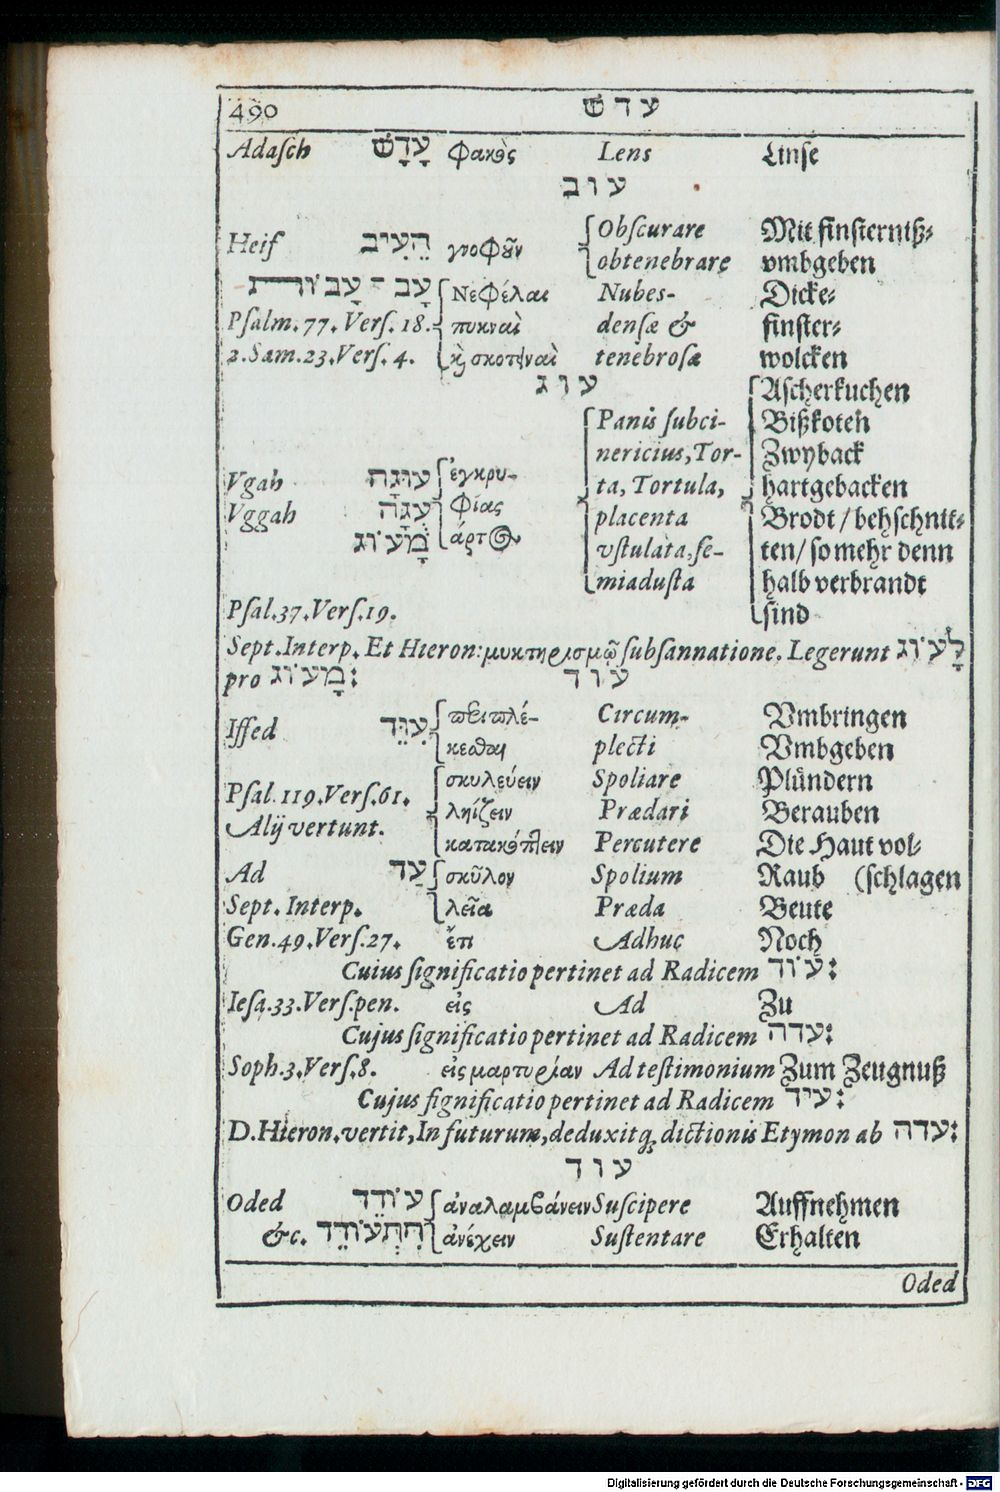 490 עדשׁ
Adaſch עָדָשׁ φακὸς Lens Linſe
עוב
Heif הֵעִיב γνοφοῦν Obſcurare Mit finſterniß⸗
obtenebrare vmbgeben
עָב ־ עָבוֹת Νεφέλαι Nubes- Dicke⸗
Pſalm. 77. Verſ. 18. πυκναὶ denſæ & finſter⸗
2. Sam. 23. Verſ. 4. κỳ σκοτηναὶ tenebroſæ wolcken
עוג Aſcherkuchen
Panis ſubci- Bißkoten
nericius, Tor- Zwyback
Vgah עוּגָה ἐγκρυ- ta, Tortula, hartgebacken
Vggah עֻגָּה φίας placenta Brodt / behſchnit⸗
מָעוֹג ἄρτος vſtulata, ſe- ten / ſo mehr denn
miaduſta halb verbrandt
Pſal. 37. Verſ. 19. ſind
Sept. Interp. Et Hieron: μυκτηρισμῷ ſubſannatione. Legerunt לָעוֹג
pro מָעוֹג: עוד
Iffed עִוֵּד περιπλέ- Circum- Vmbringen
κεσθαι plecti Vmbgeben
σκυλεύειν Spoliare Plündern
Pſal. 119. Verſ. 61. ληίζειν Prædari Berauben
Alij vertunt. κατακόπτειν Percutere Die Haut vol⸗
Ad עַד σκῦλον Spolium Raub (ſchlagen
Sept. Interp. λεῖα Præda Beute
Gen. 49. Verſ. 27. ἔτι Adhuc Noch
Cuius ſignificatio pertinet ad Radicem עוֹד:
Ieſa. 33. Verſ. pen. εἰς Ad Zu
Cujus ſignificatio pertinet ad Radicem עדה:
Soph. 3. Verſ. 8. εἰς μαρτυρίαν Ad teſtimonium Zum Zeugnuß
Cujus ſignificatio pertinet ad Radicem עיד:
D. Hieron. vertit, In futurum, deduxitq; dictionis Etymon ab עדה:
עוד
Oded עוֹדֵד ἀναλαμβάνειν Suſcipere Auffnehmen
&c. הִתְעוֹדֵד ἀνέχειν Suſtentare Erhalten
Oded
Digitalisierung gefördert durch die Deutsche Forschungsgemeinschaft - DFG